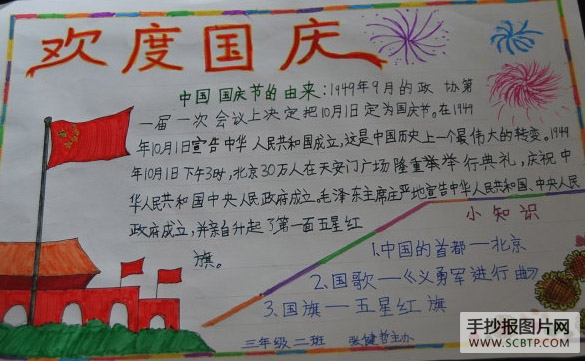 欢度国庆
中国国庆节的由来：1949年9月的政协第
一届一次会议上决定把10月1日定为国庆节。在1949
年10月1日宣告中华人民共和国成立，这是中国历史上一个最伟大的转变。1949
年10月1日下午3时，北京30万人在天安门广场隆重举举行典礼，庆祝中
华人民共和国中央人民政府成立。毛泽东主席庄严地宣告中华人民共和国、中央人民
政府成立，并亲自升起了第一面五星红
旗。
小知识
1.中国的首都—北京
2.国歌—《义勇军进行曲》
3.国旗—五星红旗
三年级二班 张健哲主办
手抄报图片网
WWW.SCBTP.COM